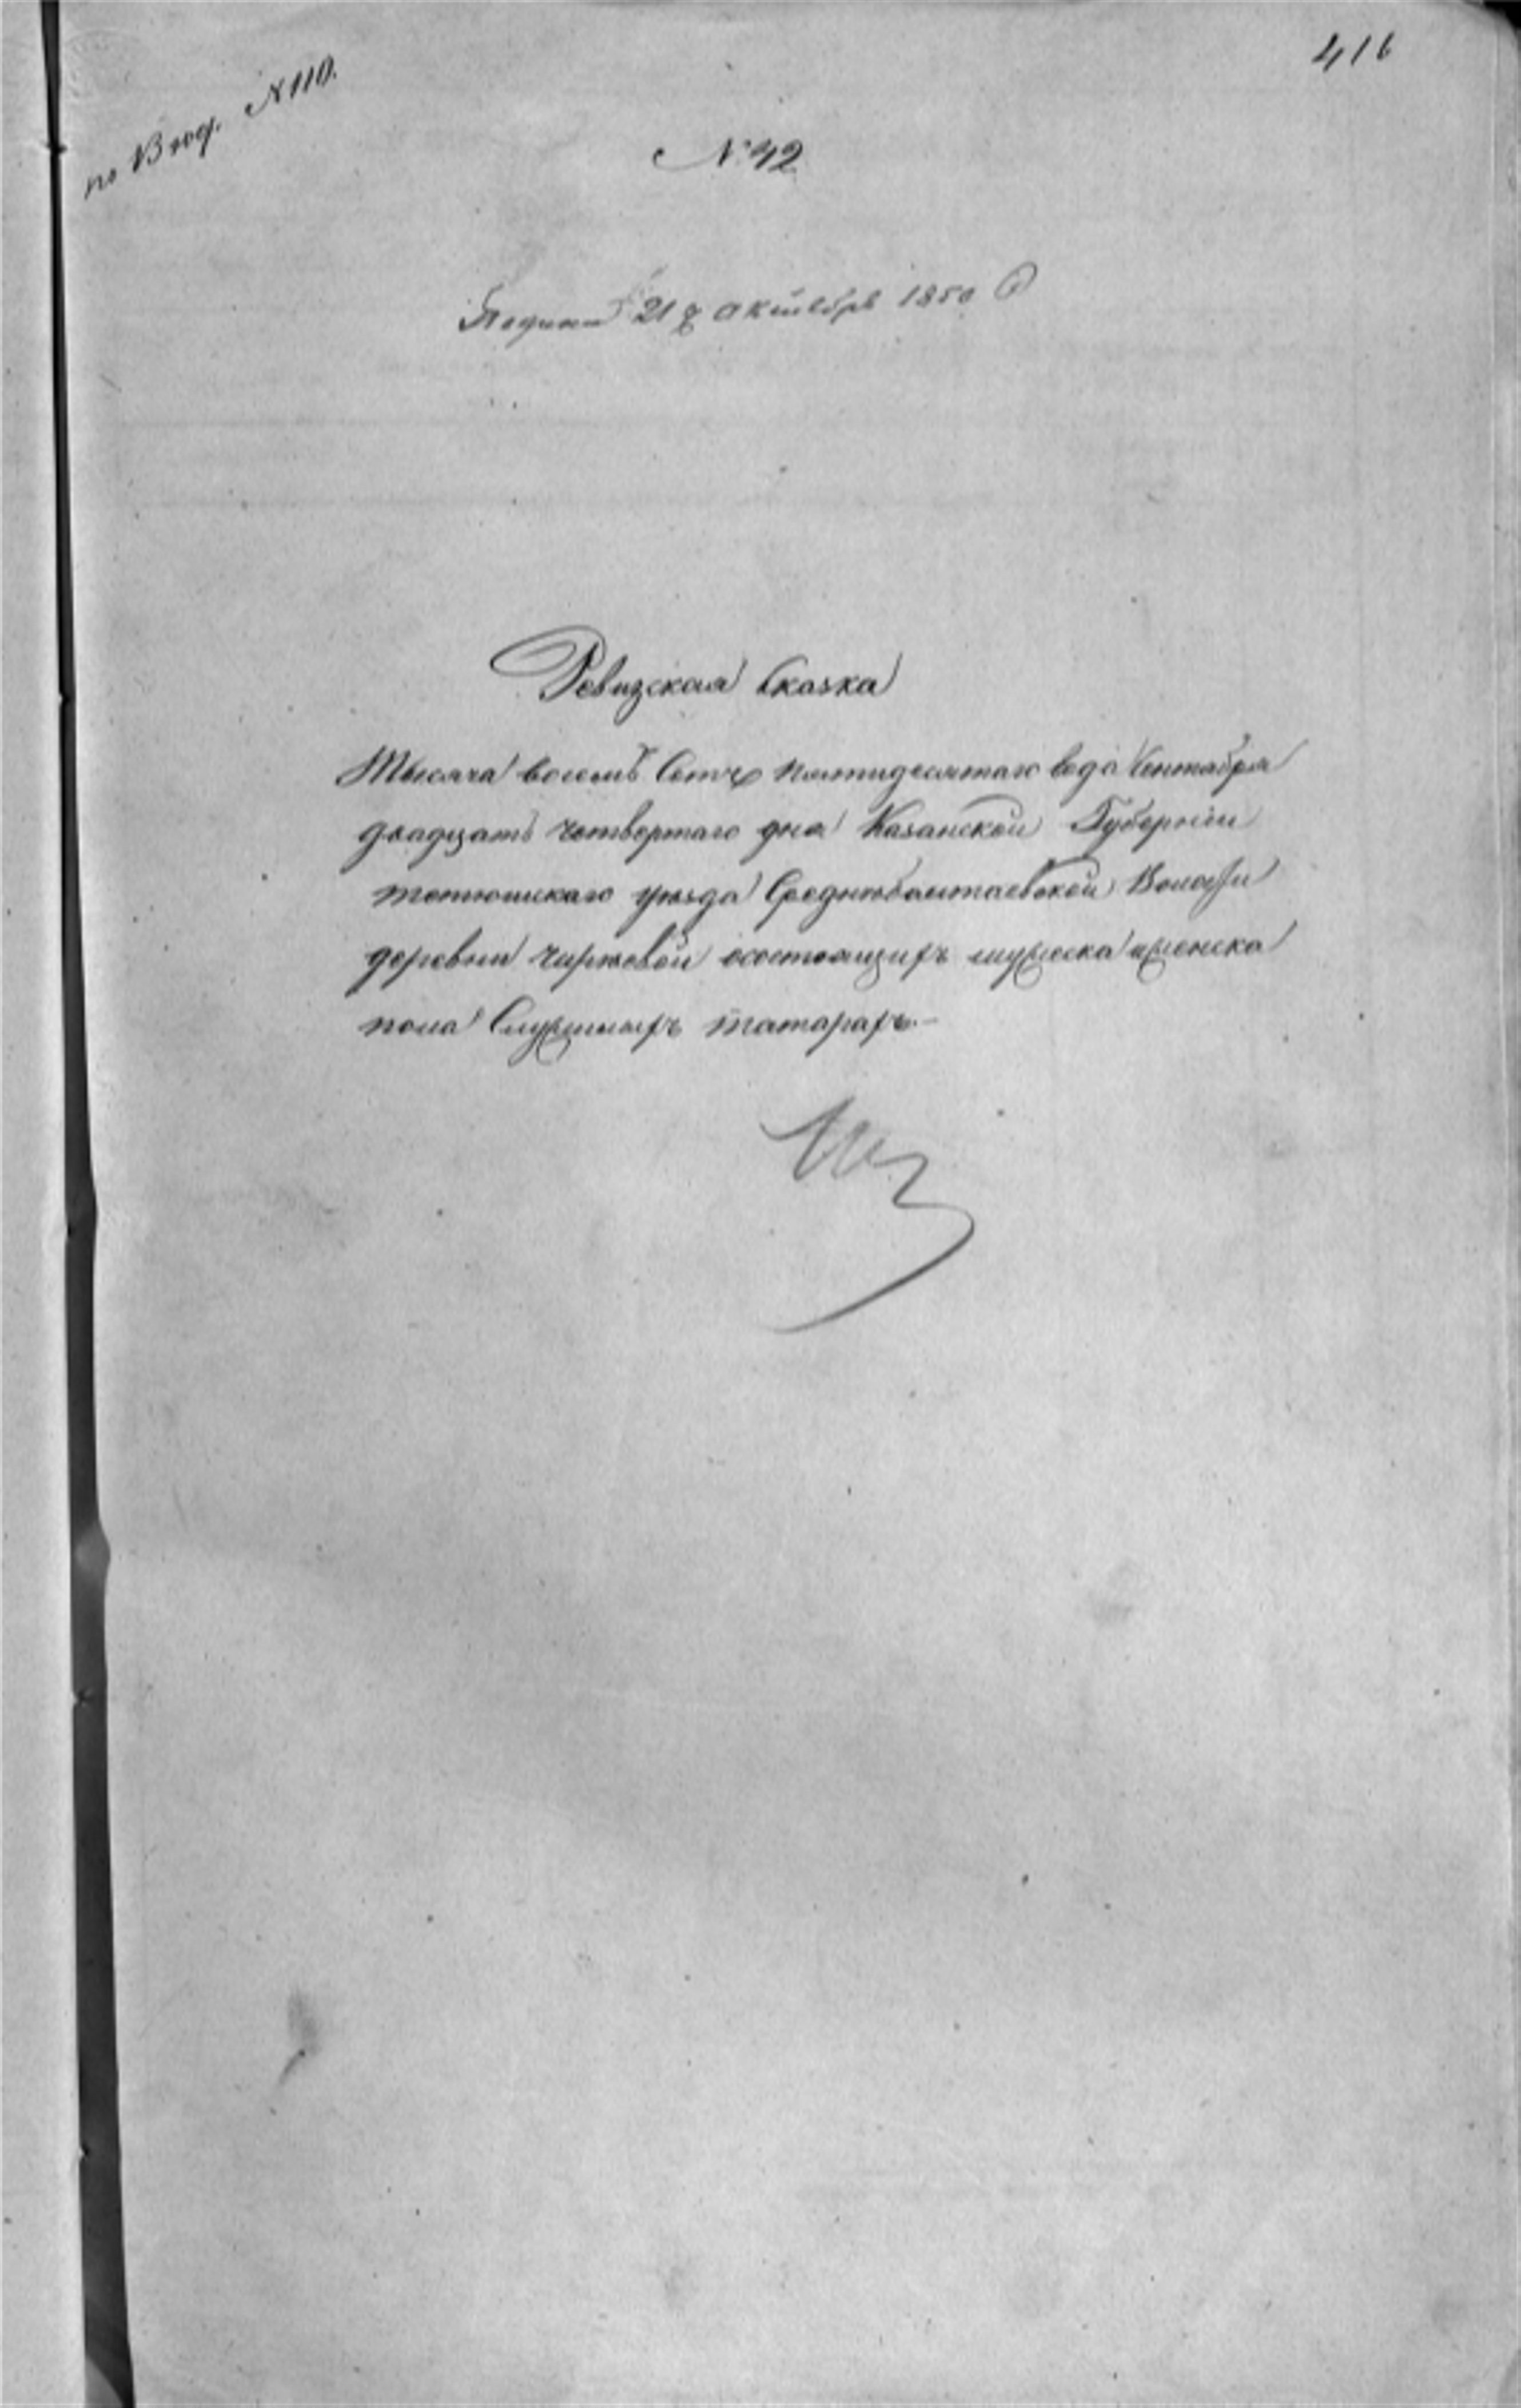 416
по Вход. №110.
№ 42
Подана 21 Октября 1850
Ревизская Сказка
Тысяча восемь Сотъ пятидесятаго года Сентября
двадцать четвертаго дня Казанской Губерніи
тетюшскаго уѣзда Среднебалтаевской Волости
деревни чирковой осостоящихъ мужеска иженска
пола Служилыхъ татарахъ.-